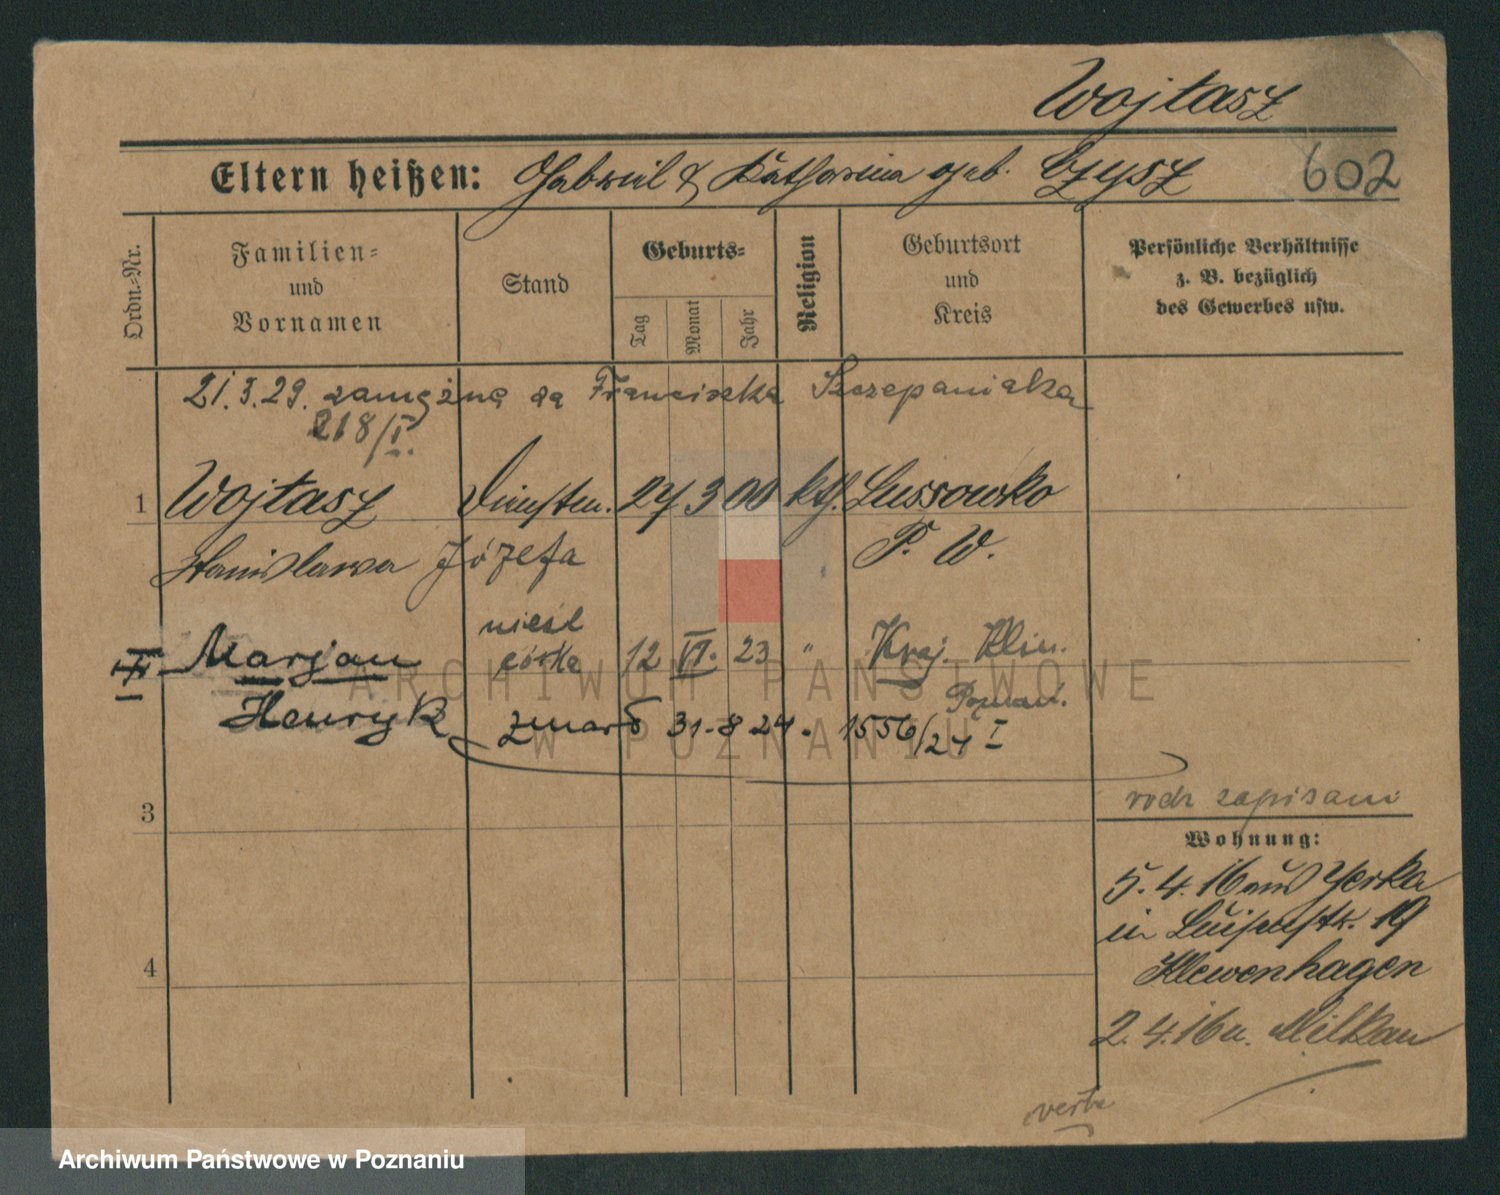 Wojtasz
Eltern heißen: Gabriel & Katharina geb. Czysz 602
Ordn.-Nr.
Familien-
und
Vornamen
Stand
Geburts-
Tag
Monat
Jahr
Religion
Geburtsort
und
Kreis
Persönliche Verhältnisse
z. B. bezüglich
des Gewerbes usw.
21.3.29. zamężna za Franciszka Szczepaniaka
218/I.
1 Wojtasz Dienstm. 27 3 00 kth. Lussowko
Stanislawa Józefa P. W.
II Marjan nieśl córka 12 VI. 23 " Kraj. Klin. Poznań.
Henryk zmarł 31.8 24. 1556/24 I
3
rodz zapisani
Wohnung:
5.4.16 aus Jerka
in Luisenstr. 19
Klewenhagen
4
2.4.16 u. Milkau
verte
ARCHIWUM PAŃSTWOWE
W POZNANIU
Archiwum Państwowe w Poznaniu